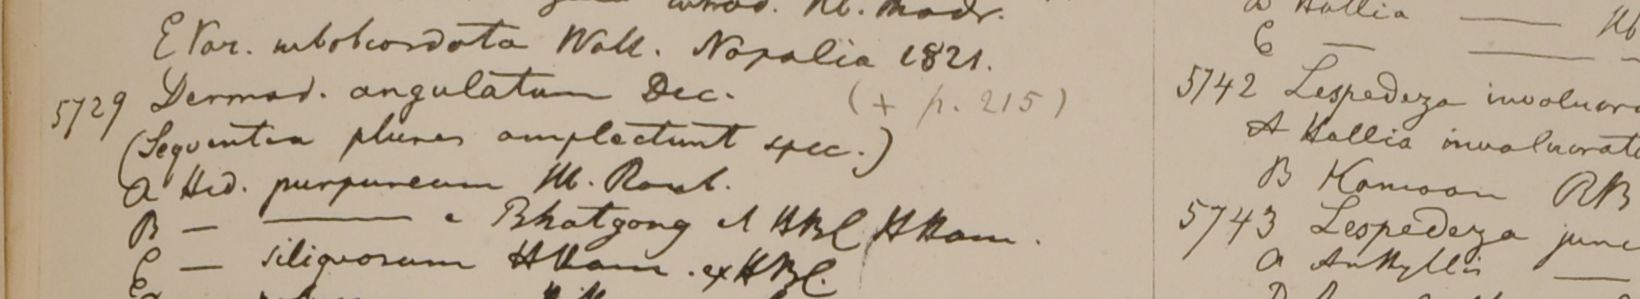 E Var. subobcordata Wall. Napalia 1821.
5729 Desmod. angulatum Dec. (+ p. 215)
(Sequentia plures amplectunt spec.)
a Hed. purpureum Hb. Roxb.
B — ——— e Bhatgong et HBC HHam.
C — siliquosum HHam. ex HBC.
a Hallia —— Hb
C — ——
5742 Lespedeza
A Hallia
B Kamoon RB
5743 Lespedeza
a Anthyllis —